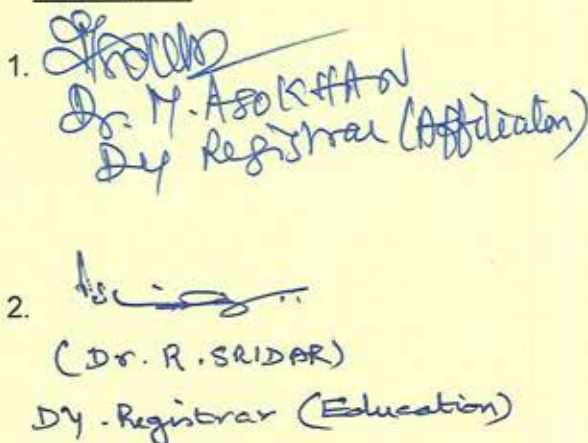 1.
Dr. M. ASOKHAN
Dy Registrar (Affiliaton)
2.
(Dr. R. SRIDAR)
Dy. Registrar (Education)